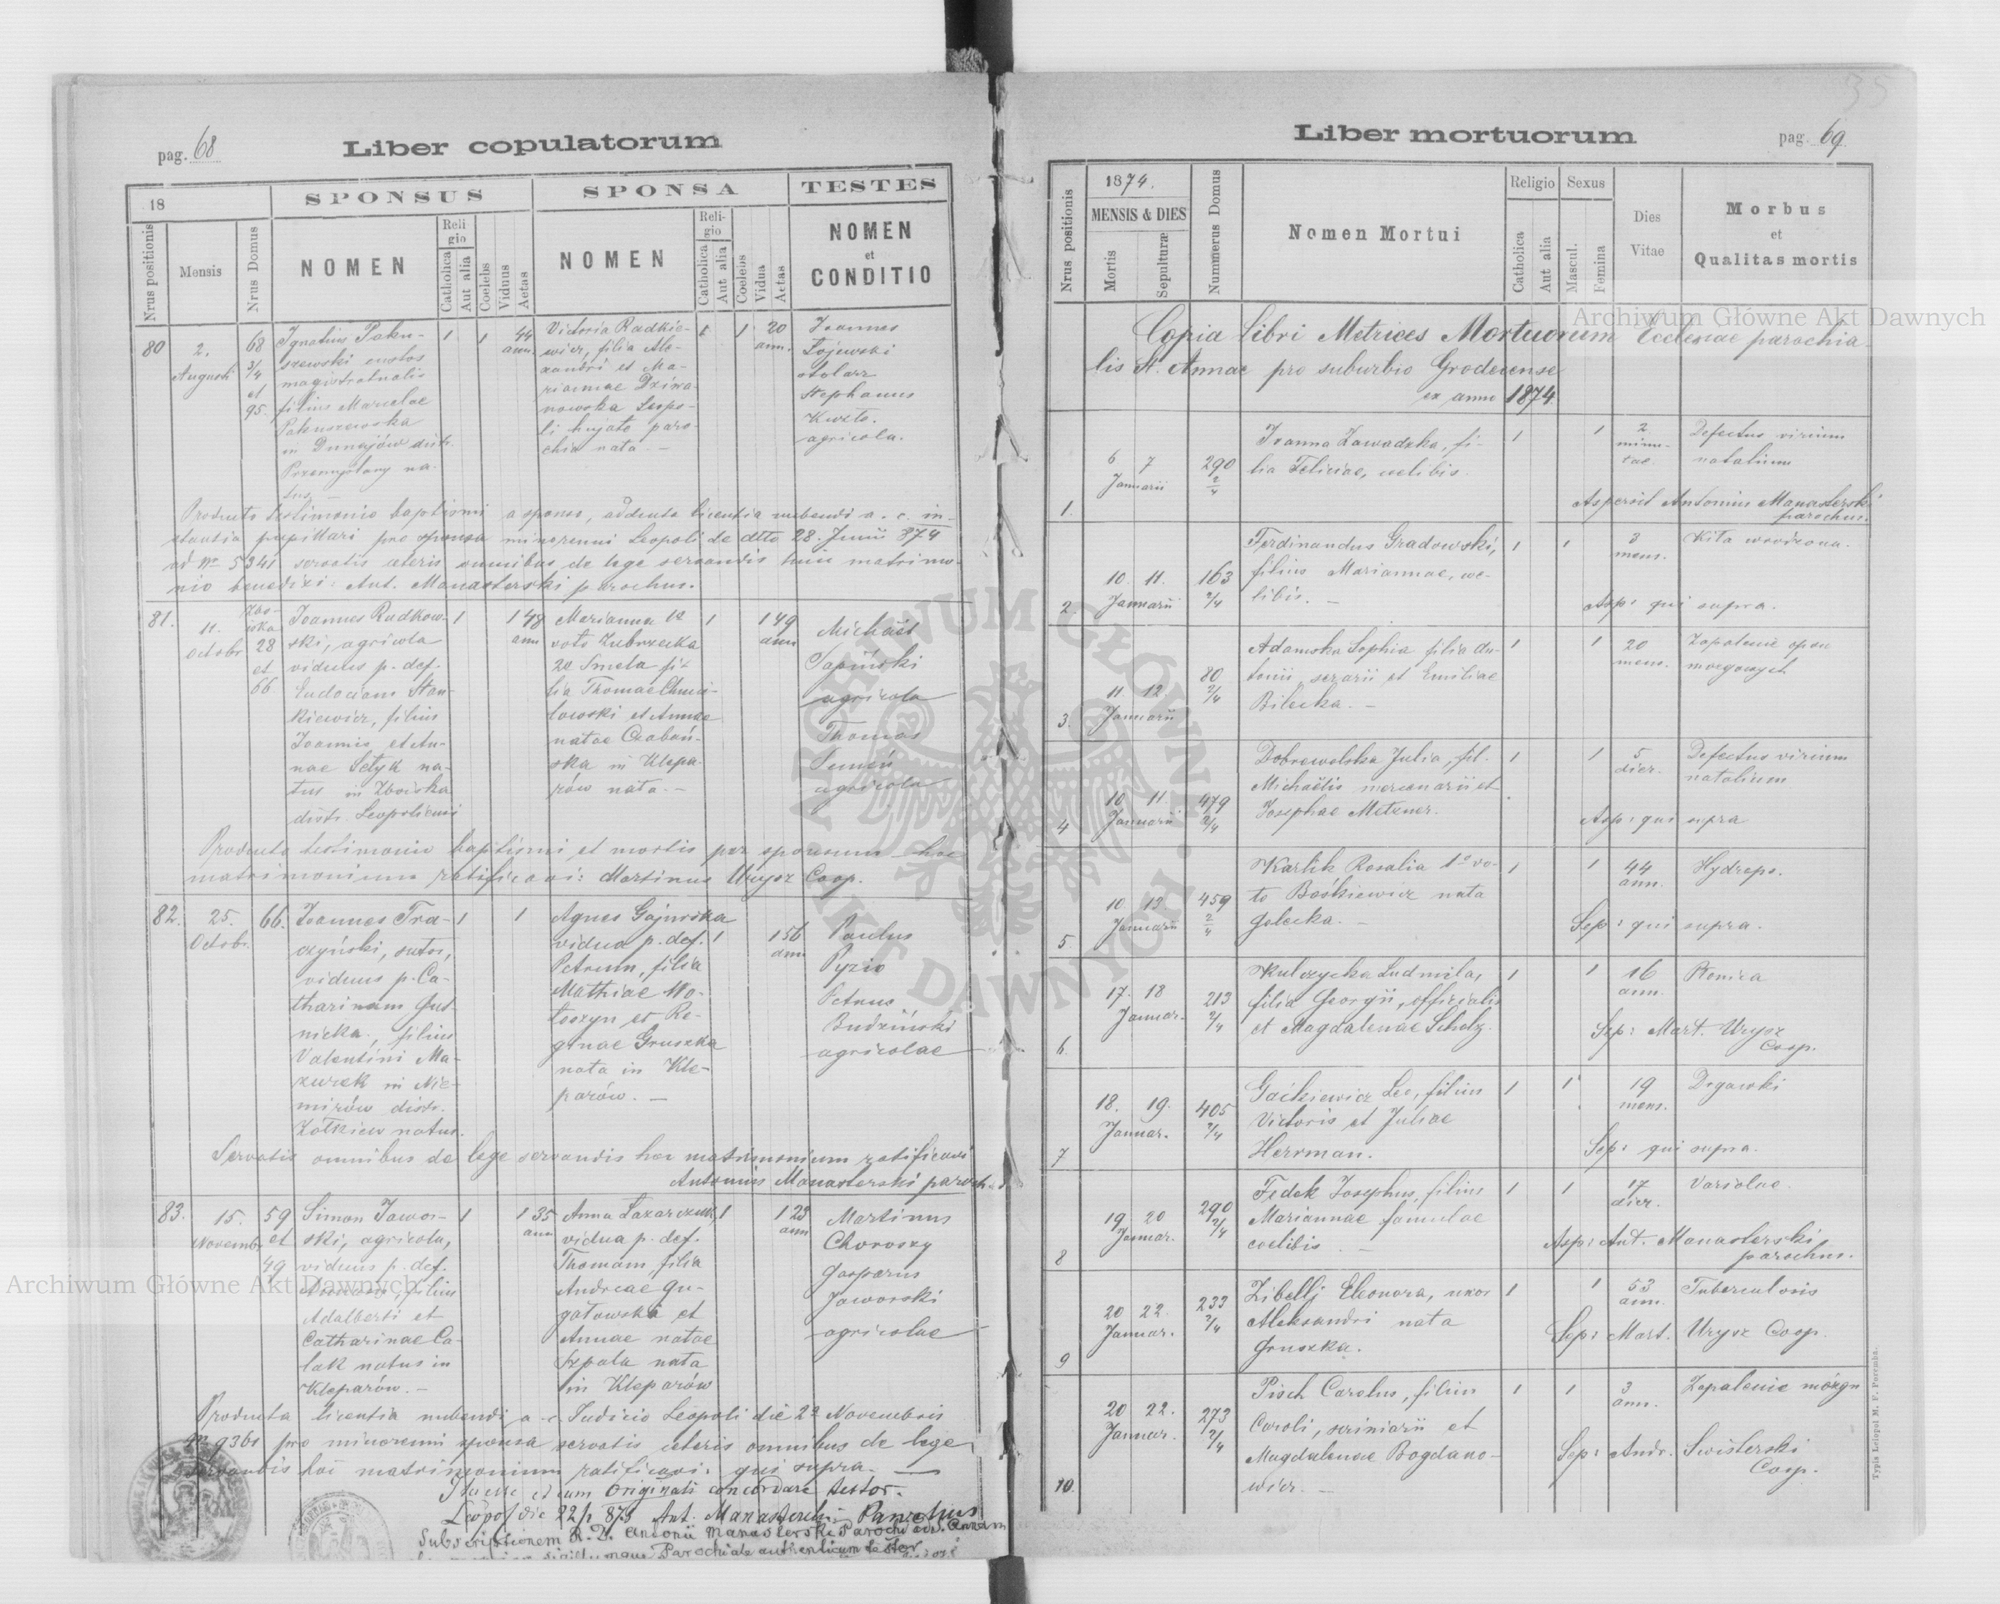 pag. 68
Liber copulatorum
18
SPONSUS
SPONSA
TESTES
Nrus positionis
Mensis
Nrus Domus
NOMEN
Religio
Catholica
Aut alia
Coelebs
Viduus
Aetas
NOMEN
Religio
Catholica
Aut alia
Coelebs
Vidua
Aetas
NOMEN
et
CONDITIO
80
2.
Augusti
68
3/4
et
95.
Ignatius Paku-
szewski custos
magistratualis
filius Marcelae
Pakuszewska
in Dunajów distr.
Przemyślany na-
tus
1
1
44
ann.
Victoria Radkie-
wicz, filia Ale-
xandri et Ma-
riannae Dziwa-
nowska Leopo-
li hujate paro-
chia nata. —
1
1
20
ann.
Joannes
Łojewski
stolarz
Stephanus
agricola.
Producto testimonio baptismi a sponso, addenta licentia nubendi a. c. in-
stantia pupillari pro sponsa minorenni Leopoli de dtto 28. Junii 874
ad Nr 5341 servatis ceteris omnibus de lege servandis huic matrimo-
nio benedixi: Ant. Manasterski parochus.
81.
11.
octobr
Zbo-
iska
28
et
66
Joannes Rudkow-
ski, agricola
viduus p. def.
Eudociam Stan-
kiewicz, filius
Joannis, et An-
nae Setyk na-
tus in Zboiska
distr. Leopoliensi
1
1
48
ann
Marianna 1º
voto Zubrzecka
2º Smela fi-
lia Thomae Chmie-
lowski et Annae
natae Czabań-
ska in Klepa-
rów nata. —
1
1
49
ann
Michaël
Sapiński
agricola
Thomas
Semeń
agricola
Producto testimonio baptismi et mortis per sponsum hoc
matrimonium ratificavi: Martinus Urysz Coop.
82.
25.
Octobr.
66.
Joannes Tra-
czyński, sutor,
viduus p. Ca-
tharinam Gut-
nicka, filius
Valentini Ma-
zurek in Nie-
mirów distr.
Żółkiew natus.
1
1
Agnes Gajurska
vidua p. def.
Petrum, filia
Mathiae Wo-
łoszyn et Re-
ginae Gruszka
nata in Kle-
parów. —
1
1
56
ann
Paulus
Pyzio
Petrus
Budziński
agricolae
Servatis omnibus de lege servandis hoc matrimonium ratificavi
Antonius Manasterski paroch.
83.
15.
Novembr
59
et
49
Simon Jawor-
ski, agricola,
viduus p. def.
filius
Adalberti et
Catharinae Ca-
lak natus in
Kleparów. —
1
1
35
ann
Anna Łazarczuk,
vidua p. def.
Thomam filia
Andreae Gu-
gałowski et
Annae natae
Szpala nata
in Kleparów
1
1
23
ann
Martinus
Choroszy
Gasparus
Jaworski
agricolae
Producta licentia nubendi a c. Judicio Leopoli die 2ª Novembris
Nr 9361 pro minorenni sponsa servatis ceteris omnibus de lege
servandis hoc matrimonium ratificavi: qui supra. —
Ita esse et cum originali concordare testor.
Leopol die 22/1 875 Ant. Manasterski Parochus
Subscriptionem R. D. Antonii Manasterski Parochi ad S. Annam
sigillumque Parochiale authenticum testor
35
Liber mortuorum
pag. 69
Nrus positionis
1874.
MENSIS & DIES
Mortis
Seputuræ
Nummerus Domus
Nomen Mortui
Religio
Catholica
Aut alia
Sexus
Mascul.
Femina
Dies
Vitae
Morbus
et
Qualitas mortis
Copia Libri Metrices Mortuorum Ecclesiae parochia-
lis St. Annae pro suburbio Grodecense
ex anno 1874
1.
6 7
Januarii
290
2/4
Joanna Zawadzka, fi-
lia Feliciae, coelibis.
1
1
2
minu-
tae.
Defectus virium
natalium
Aspersit Antonius Manasterski
parochus.
2.
10. 11.
Januarii
163
2/4
Ferdinandus Gradowski,
filius Mariannae, coe-
libis. —
1
1
3
mens.
Kiła wrodzona.
Asp: qui supra.
3.
11 12
Januarii
80
2/4
Adamska Sophia filia An-
tonii serarii et Emiliae
Bilecka. —
1
1
20
mens.
Zapalenie opon
mozgowych
4
10 11
Januarii
479
2/4
Dobrowolska Julia, fil.
Michaëlis mercenarii et
Josephae Metzner.
1
1
5
dier.
Defectus virium
natalium
Asp: qui supra
5.
10 13
Januarii
459
2/4
Karlik Rosalia 1º vo-
to Bośkiewicz nata
Golecka. —
1
1
44
ann.
Hydrops.
Sep: qui supra.
6.
17. 18
Januar.
213
2/4
Kulczycka Ludmila,
filia Georgii, officialis
et Magdalenae Scholz.
1
1
16
ann.
Płonica
Sep: Mart. Urysz
Coop.
7
18. 19.
Januar.
405
2/4
Gaćkiewicz Leo, filius
Victoris et Juliae
Herrman.
1
1
19
mens.
Drgawki
Sep: qui supra.
8
19 20
Januar.
290
2/4
Fedak Josephus, filius
Mariannae famulae
coelibis —
1
1
17
dier.
Variolae.
Asp: Ant. Manasterski
parochus.
9
20 22.
Januar.
233
2/4
Zibelli Eleonora, uxor
Aleksandri nata
Gruszka.
1
1
53
ann.
Tuberculosis
Sep: Mart. Urysz Coop.
10.
20 22.
Januar.
273
2/4
Pisch Carolus, filius
Caroli, scriniarii et
Magdalenae Bogdano-
wicz. —
1
1
3
ann.
Zapalenie mózgu
Sep: Andr. Swisterski
Coop.
Typis Leopol M. F. Poremba.
Archiwum Główne Akt Dawnych
Archiwum Główne Akt Dawnych
ARCHIWUM GŁÓWNE AKT DAWNYCH